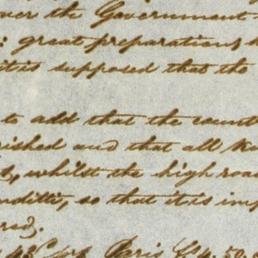 over the Government
: great preparations
it is supposed that the
to add that the count
ished and that all
, whilst the high roa
nditti, so that it is imp
red.
Paris